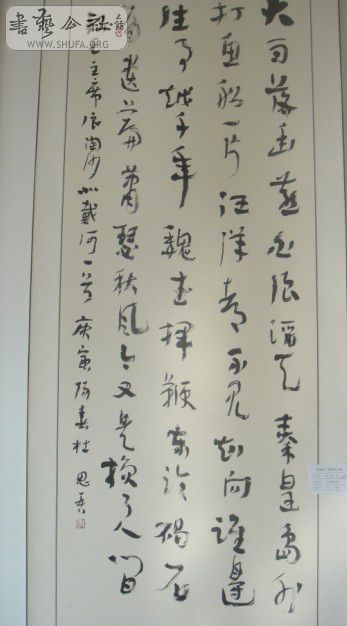 書藝公社
WWW.SHUFA.ORG
大雨落幽燕白浪滔天秦皇島外
打魚船一片汪洋都不見知向誰邊
往事越千年魏武揮鞭東臨碣石
有遺篇蕭瑟秋風今又是換了人間
毛主席浪淘沙北戴河一首 庚寅陽春杜思